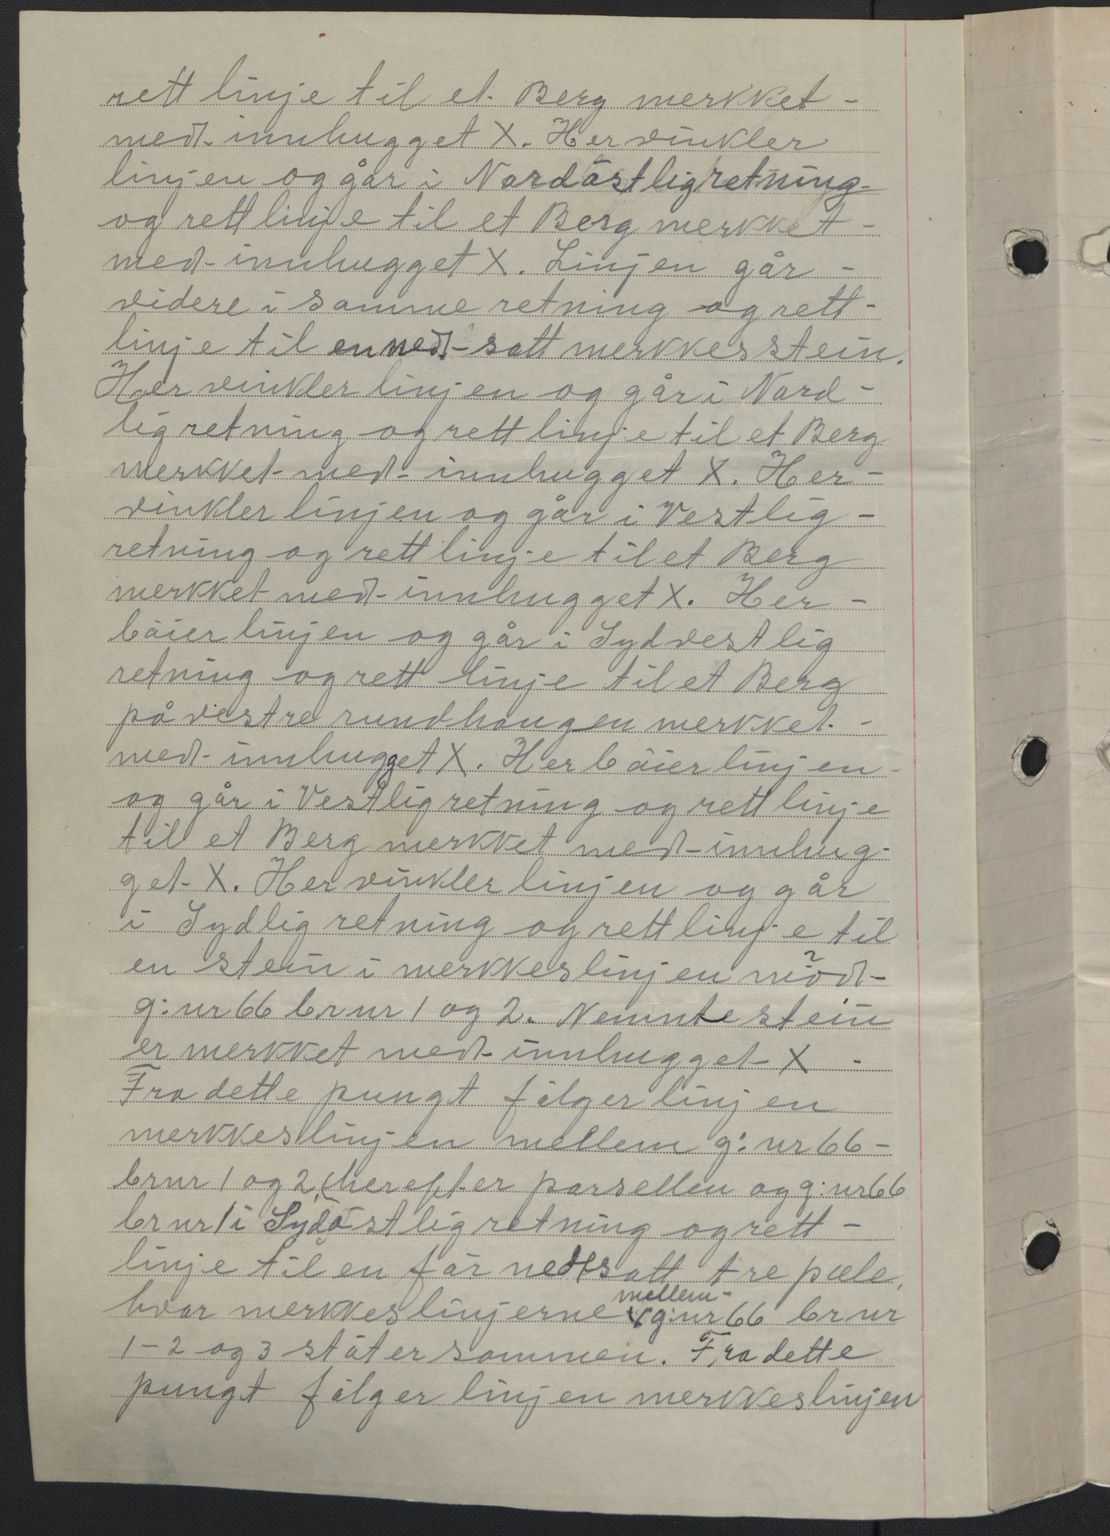 rett linje til et Berg merkket -
med- innhugget X. Her vinkler
linjen og går i Nordöstlig retning-
og rett linje til et Berg merkket -
med- innhugget X. Linjen går -
videre i samme retning og rett-
linje til en ned-satt merkkesstein.
Her vinkler linjen og går i Nord -
lig retning og rett linje til et Berg
merkket med- innhugget X. Her -
vinkler linjen og går i Vestlig -
retning og rett linje til et Berg
merkket med- innhugget X. Her -
böier linjen og går i Sydvestlig
retning og rett linje til et Berg
på vestre rundhaugen merkket -
med- innhugget X. Her böier linjen -
og går i Vestlig retning og rett linje
til et Berg merkket med- innhug-
get- X. Her vinkler linjen og går
i Sydlig retning og rett linje til
en stein i merkkeslinjen möd-
g:nr 66 br nr 1 og 2. Nemnte stein
er merkket med- innhugget- X -
Fra dette pungt fölger linjen
merkkeslinjen mellem g:nr 66 -
br nr 1 og 2, herefter parsellen og g:nr 66
br nr 1 i Sydöstlig retning og rett -
linje til en för nedsatt tre pæle,
hvor merkkeslinjerne mellem- g:nr 66 br nr
1-2 og 3 stöter sammen. Fra dette
pungt fölger linjen merkkeslinjen